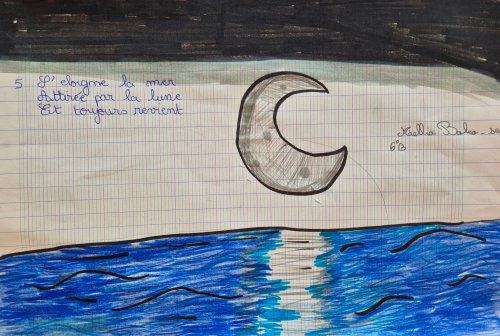 5 S'eloigne la mer
Attirée par la lune
Et toujours revient
6°B